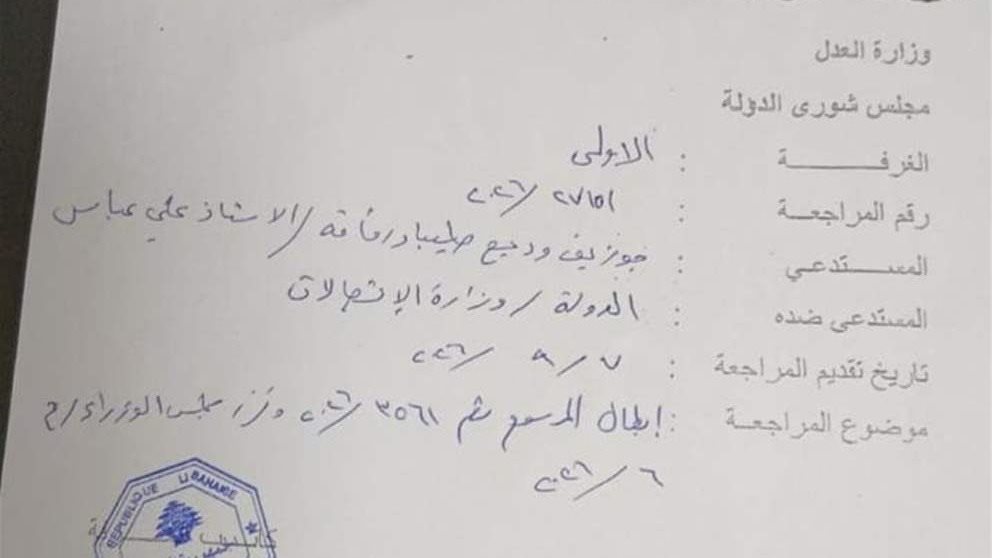 وزارة العدل
مجلس شورى الدولة
الغرفـــــــة : الاولى
رقم المراجعـــة : ٢٧١٥١ / ٢٠٢٦
المستـــدعـــي : جوزيف وديع صليبا ورفاقه / الاستاذ علي عباس
المستدعى ضده : الدولة / وزارة الإتصالات
تاريخ تقديم المراجعة : ٧ / ٨ / ٢٠٢٦
موضوع المراجعـــة : إبطال المرسوم رقم ٣٥٦١ / ٢٠٢٦ وقرار مجلس الوزراء
٦ / ٢٠٢٦
REPUBLIQUE LIBANAISE